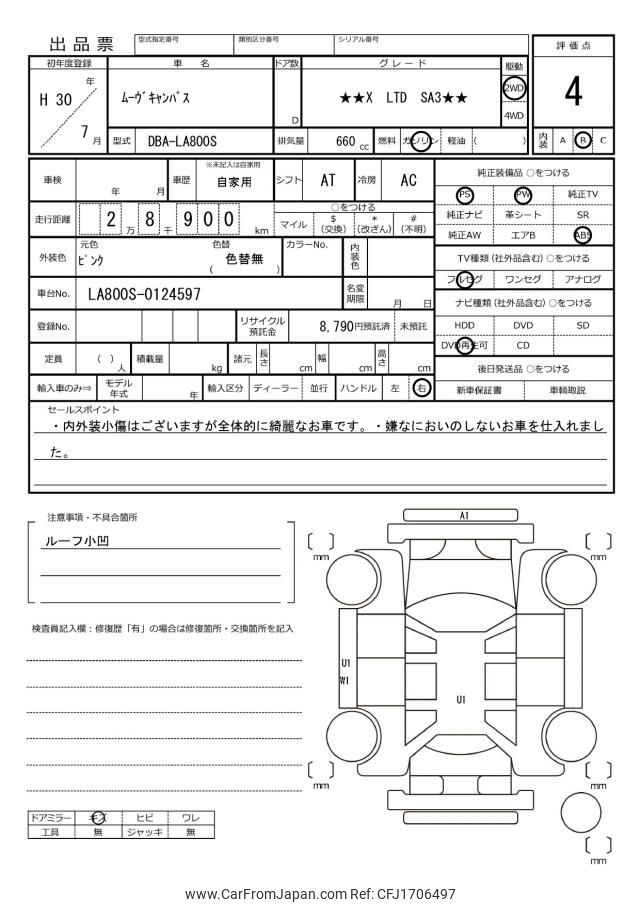 出品票 型式指定番号 類別区分番号 シリアル番号 評価点
初年度登録 車名 ドア数 グレード 駆動
H 30 年 ﾑｰｳﾞｷｬﾝﾊﾞｽ D ★★X LTD SA3★★ 2WD 4
7 月 4WD
型式 DBA-LA800S 排気量 660 cc 燃料 ガソリン 軽油 ( ) 内装 A B C
車検 年 月 車歴 ※未記入は自家用 自家用 シフト AT 冷房 AC 純正装備品 ○をつける
PS PW 純正TV
走行距離 2 万 8 千 9 0 0 km ○をつける
マイル $(交換) *(改ざん) #(不明) 純正ナビ 革シート SR
外装色 元色 ﾋﾟﾝｸ 色替 ( 色替無 ) カラーNo. 内装色 純正AW エアB ABS
TV種類 (社外品含む) ○をつける
車台No. LA800S-0124597 名変期限 月 日 フルセグ ワンセグ アナログ
ナビ種類 (社外品含む) ○をつける
登録No. リサイクル預託金 8,790円預託済 未預託 HDD DVD SD
定員 ( ) 人 積載量 kg 諸元 長さ cm 幅 cm 高さ cm DVD再生可 CD
後日発送品 ○をつける
輸入車のみ⇒ モデル年式 年 輸入区分 ディーラー 並行 ハンドル 左 右 新車保証書 車輌取説
セールスポイント
・内外装小傷はございますが全体的に綺麗なお車です。・嫌なにおいのしないお車を仕入れまし
た。
注意事項・不具合箇所
ルーフ小凹
検査員記入欄：修復歴「有」の場合は修復箇所・交換箇所を記入
A1
mm mm
U1
W1
U1
mm mm
mm
ドアミラー キズ ヒビ ワレ
工具 無 ジャッキ 無
www.CarFromJapan.com Ref: CFJ1706497